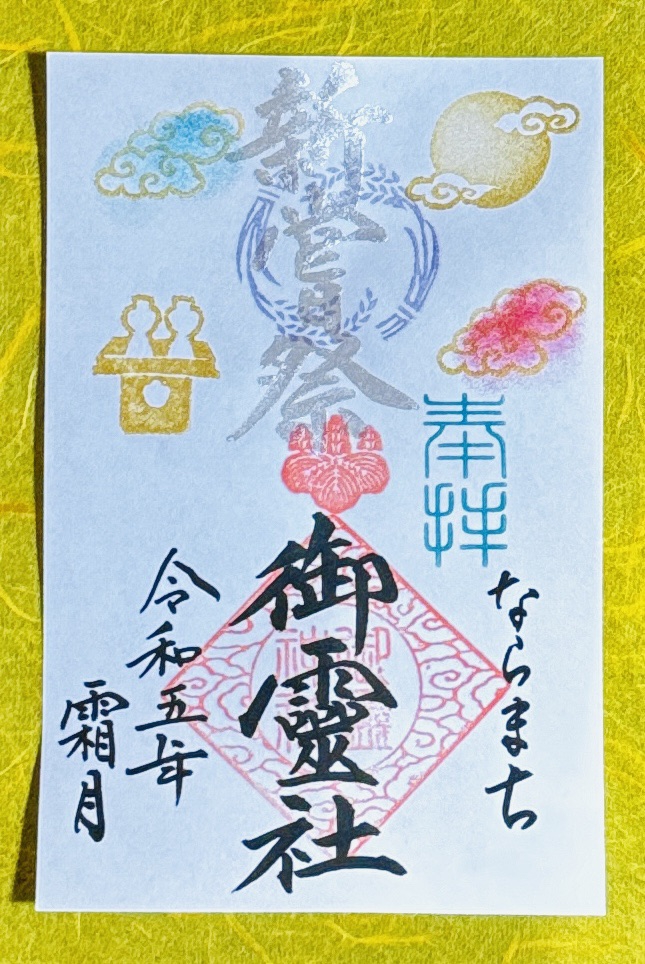 奉拝
ならまち
新嘗祭
御靈社
令和五年
霜月